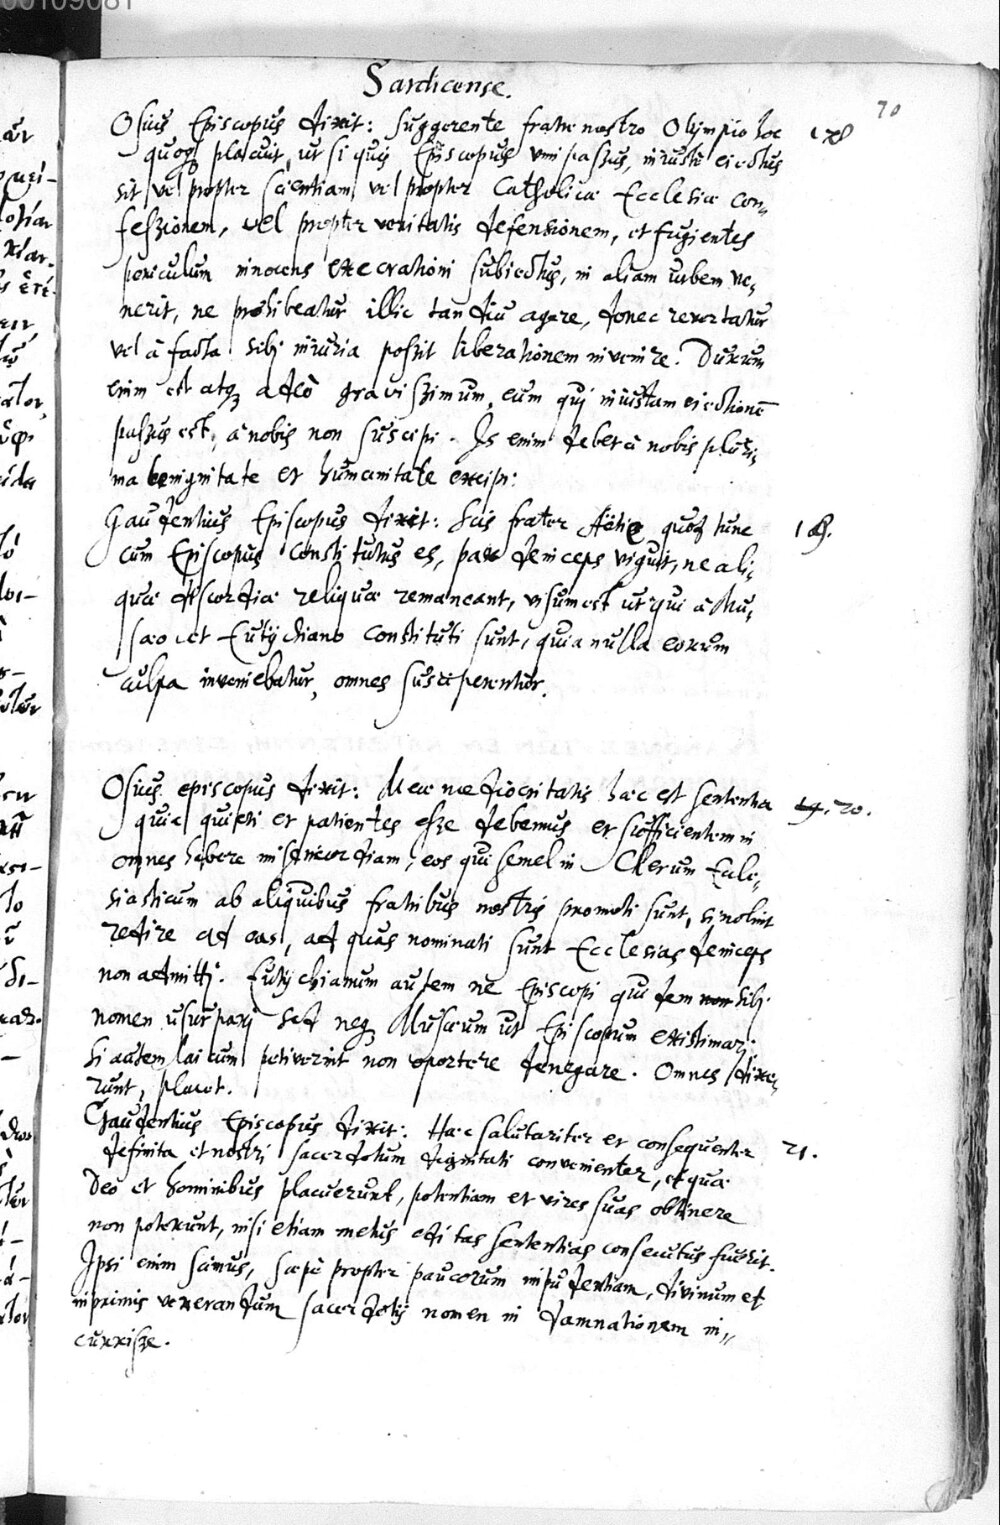 00109081
Sardicense.
70
Osius Episcopus dixit: suggerente fratre nostro Olÿmpio hoc
18
quoq placuit, ut si quis Episcopus vim passus, iniuste eiectus
sit vel propter scientiam vel propter Catholicæ Ecclesiæ con„
feszionem, vel propter veritatis defensionem, et fugientes
periculum innocens execrationi subiectus, in aliam urbem ve„
nerit, ne prohibeatur illic tandiu agere, donec revertatur
vel à facta sibi iniuria possit liberationem invenire. Durum
enim est atq adeò gravissimum, eum qui iniustam eiectionē
passus est, à nobis non suscipi. Is enim debet à nobis pluri„
ma benignitate et humanitate excipi:
Gaudentius Episcopus dixit: Scis frater Aëtie quod tunc
19.
cum Episcopus constitutus es, pax deinceps viguit, ne ali„
quæ discordiæ reliquæ remaneant, visum est ut qui à Mu„
sæo et Eutÿchiano constituti sunt, quia nulla eorum
culpa inveniebatur, omnes susciperentur.
Osius episcopus dixit: Meæ mediocritatis hæc est sententia
19. 20.
quia quieti et patientes esse debemus et sufficientem in
omnes habere misericordiam, eos qui semel in Clerum Ecle„
siasticum ab aliquibus fratribus nostris promoti sunt, si nolint
redire ad eas, ad quas nominati sunt Ecclesias deinceps
non admitti. Eutychianum autem ne Episcopi quidem non sibi
nomen usurpari sed neq Musæum ut Episcopum existimari.
Si autem laicum petiverint non oportere denegare. Omnes dixe„
runt, placet.
Gaudentius Episcopus dixit: Hæc salutariter et consequenter
21.
definita et nostri sacerdotum dignitati convenienter, et quæ
Deo et hominibus placuerunt, potentiam et vires suas obtinere
non poterunt, nisi etiam metus editas sententias consecutus fuerit.
Ipsi enim scimus, sæpè propter paucorum impudentiam, divinum et
inprimis venerandum sacerdotij nomen in damnationem in„
currisse.